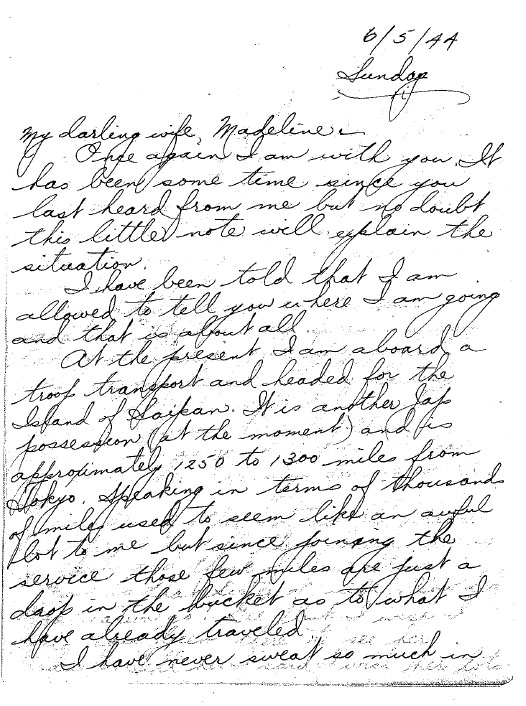 6/5/44
Sunday
My darling wife, Madeline
Once again I am with you. It
has been some time since you
last heard from me but no doubt
this little note will explain the
situation.
I have been told that I am
allowed to tell you where I am going
and that is about all
At the present I am aboard a
troop transport and headed for the
Island of Saipan. It is another Jap
possession (at the moment) and is
approximately 1250 to 1300 miles from
Tokyo. Speaking in terms of thousands
of miles used to seem like an awful
lot to me but since joining the
service those few miles are just a
drop in the bucket as to what I
have already traveled.
I have never sweat so much in